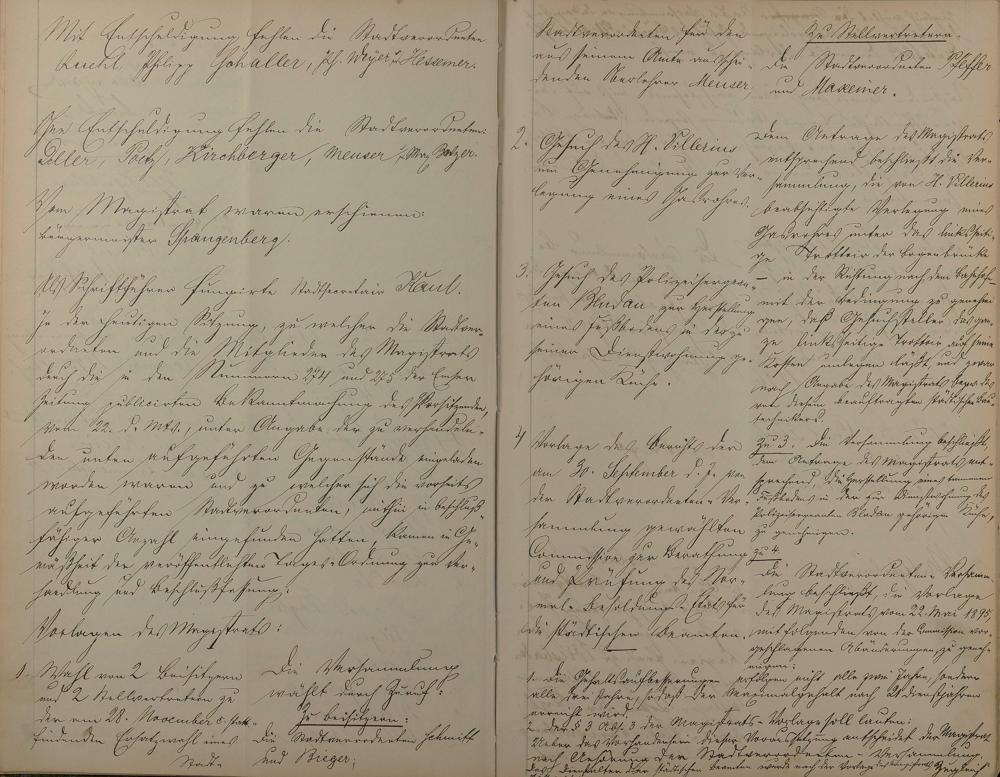 Mit Entschuldigung fehlen die Stadtverordneten
Philipp Schaller, Ph. Weyer u. Hessemer.
Ohne Entschuldigung fehlen die Stadtverordneten:
Kirchberger, Meuser u. Max Balzer.
Vom Magistrat waren erschienen:
Bürgermeister Spangenberg.
Als Schriftführer fungirte Stadtsecretair Kaul.
In der heutigen Sitzung, zu welcher die Stadtver-
ordneten und die Mitglieder des Magistrats
durch die in den Nummern 274 und 275 der Emser
Zeitung publicirten Bekanntmachung des Vorsitzenden
vom 22. d. Mts., unter Angabe der zu verhandeln-
den unten aufgeführten Gegenstände eingeladen
worden waren und zu welcher sich die vorseits
aufgeführten Stadtverordneten, mithin in beschluß-
fähiger Anzahl eingefunden hatten, kamen in Ge-
mäßheit der veröffentlichten Tages-Ordnung zur Ver-
handlung und Beschlußfassung:
Vorlagen des Magistrats:
1. Wahl von 2 Beisitzern
und 2 Stellvertretern zu
der am 28. November c. statt-
findenden Ersatzwahl eines
Stadt-
Die Versammlung
wählt durch Zuruf:
Zu Beisitzern:
Die Stadtverordneten Schmitt
und Rieger;
Stadtverordneten für den
aus seinem Amte ausschei-
denden Oberlehrer Meuser.
Zu Stellvertretern.
Die Stadtverordneten Pfeffer
und Maxeiner.
2. Gesuch des H. Villerius
um Genehmigung zur Ver-
legung eines Gasrohres.
Dem Antrage des Magistrats
entsprechend beschließt die Ver-
sammlung, die von H. Villerius
beabsichtigte Verlegung eines
Gasrohres unter das linksseiti-
ge Trottoir der Bogenbrücke
– in der Richtung nach dem Bahnhof –
mit der Bedingung zu genehmi-
gen, daß Gesuchsteller das gan-
ze linksseitige Trottoir auf seine
Kosten umlegen läßt, und zwar
nach Angabe des Magistrats bezw. des
von diesem beauftragten städtischen Bau-
technikers.
3. Gesuch des Polizeisergean-
ten Bludau zur Herstellung
eines Fußbodens in der zu
seiner Dienstwohnung ge-
hörigen Küche.
Zu 3. Die Versammlung beschließt,
dem Antrage des Magistrats ent-
sprechend, die Herstellung eines tannenen
Fußbodens in der zur Dienstwohnung des
Polizeisergeanten Bludau gehörigen Küche,
zu genehmigen.
4 Vorlage des Berichts der
am 30. September d. J. von
der Stadtverordneten-Ver-
sammlung gewählten
Commission zur Berathung
und Prüfung des Nor-
mal-Besoldungs-Etats für
die städtischen Beamten.
Zu 4.
Die Stadtverordneten-Versamm-
lung beschließt, die Vorlage
des Magistrats vom 22. Mai 1895,
mit folgenden von der Commission vor-
geschlagenen Abänderungen zu geneh-
migen:
1. Die Gehaltsaufbesserungen erfolgen nicht alle zwei Jahre, sondern
alle drei Jahre, sodaß der Maximalgehalt nach 21 Dienstjahren
erreicht wird.
2. der § 3 Abs. 3 der Magistrats-Vorlage soll lauten:
Ueber das Vorhandensein dieser Voraussetzung entscheidet der Magistrat
nach Anhörung der Stadtverordneten-Versammlung